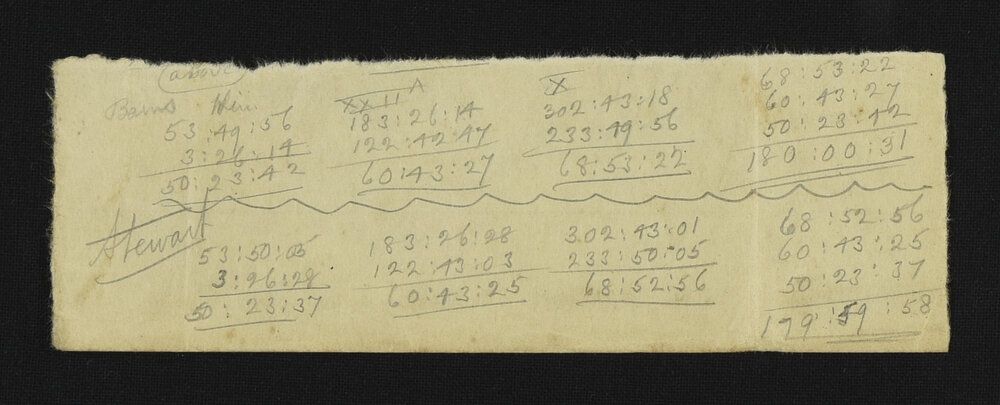 (above)
53:49:56
3:26:14
50:23:42
XX 11 A
183:26:14
122:42:47
60:43:27
X
302:43:18
233:49:56
68:53:22
68:53:22
60:43:27
50:23:42
180:00:31
Stewart
53:50:05
3:26:28
50:23:37
183:26:28
122:43:03
60:43:25
302:43:01
233:50:05
68:52:56
68:52:56
60:43:25
50:23:37
179:59:58